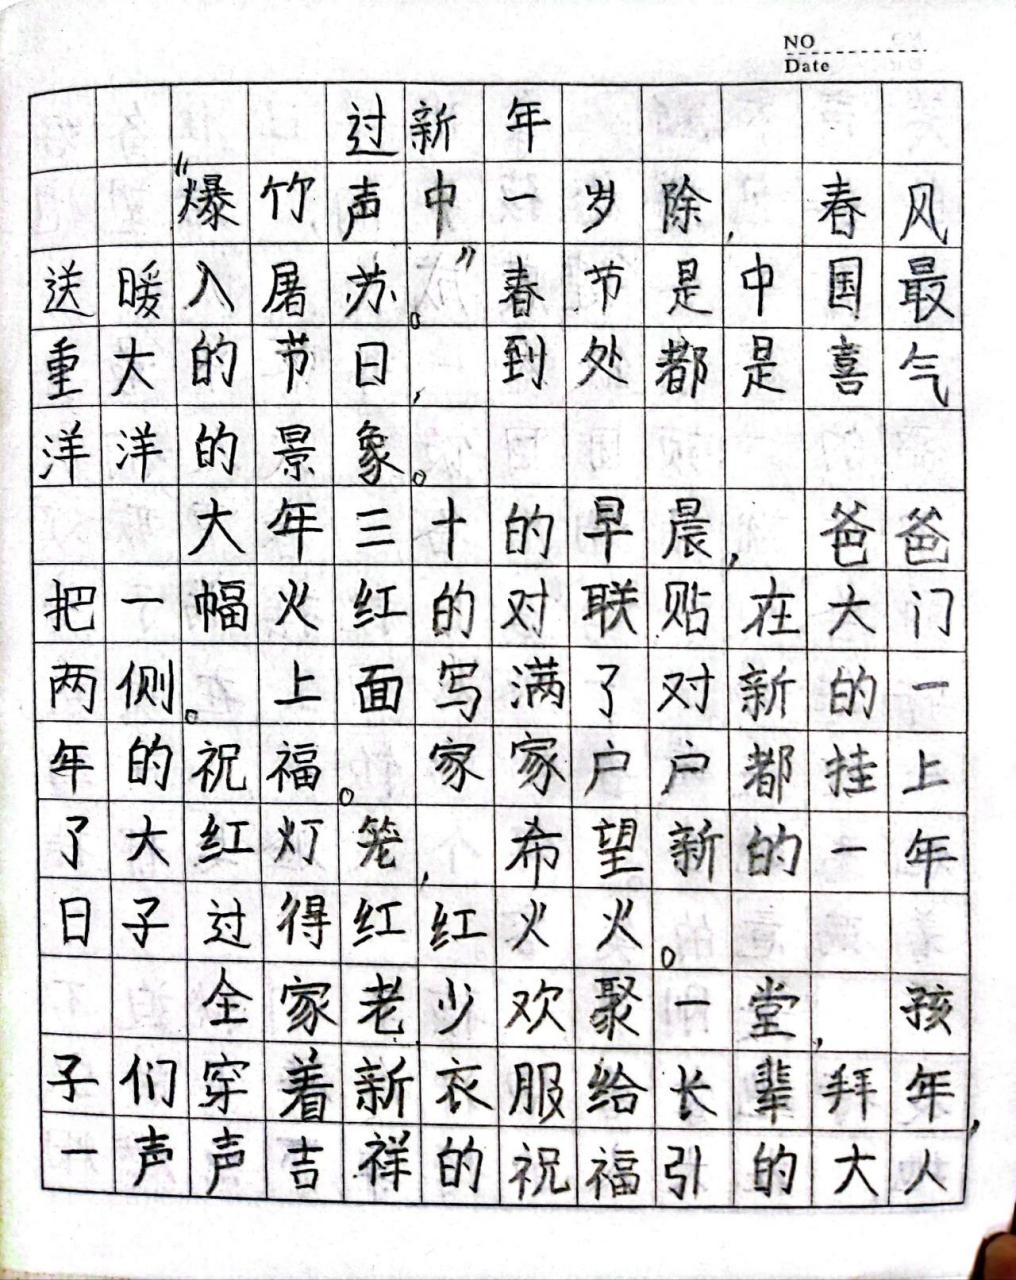 NO
Date
过新年
“爆竹声中一岁除,春风
送暖入屠苏。”春节是中国最
重大的节日,到处都是喜气
洋洋的景象。
大年三十的早晨,爸爸
把一幅火红的对联贴在大门
两侧。上面写满了对新的一
年的祝福。家家户户都挂上
了大红灯笼,希望新的一年
日子过得红红火火。
全家老少欢聚一堂,孩
子们穿着新衣服给长辈拜年,
一声声吉祥的祝福引的大人